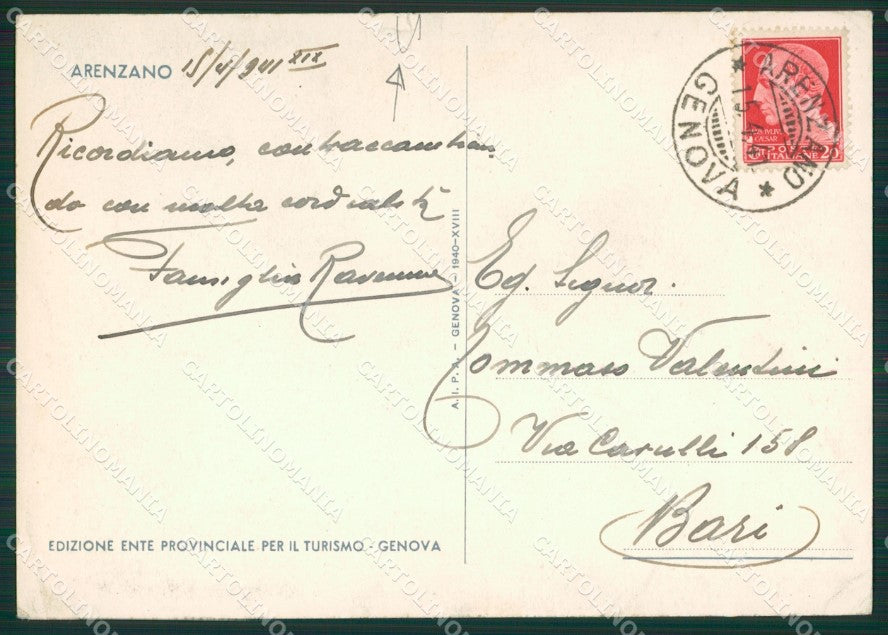 ARENZANO 15/4/941 XIX
Ricordiamo, contraccambian
do con molta cordialità
Famiglia Ravenna
A. I. P. A. – GENOVA – 1940-XVIII
ARENZANO
GENOVA
15.4.41
IVLIVS
CAESAR
POSTE
ITALIANE 20
Eg. Signor.
Tommaso Valentini
Via Carulli 158
Bari
EDIZIONE ENTE PROVINCIALE PER IL TURISMO - GENOVA
CARTOLINOMANIA